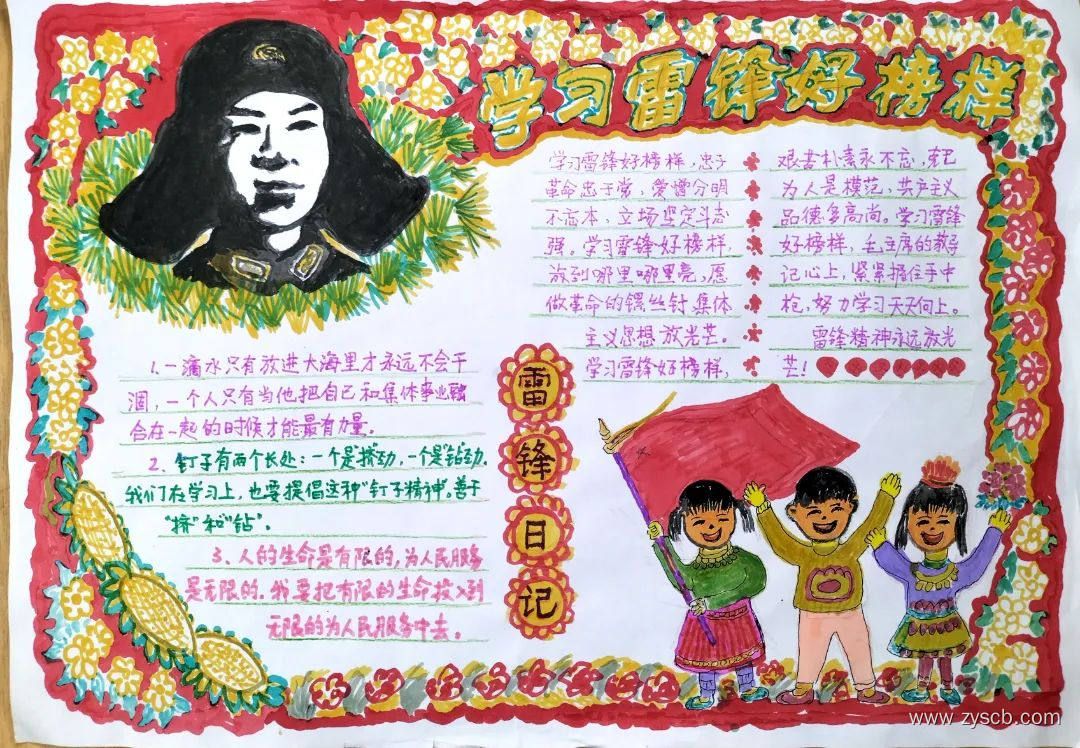 学习雷锋好榜样
学习雷锋好榜样,忠于
革命忠于党,爱憎分明
不忘本,立场坚定斗志
强。学习雷锋好榜样,
放到哪里哪里亮,愿
做革命的镙丝钉集体
主义思想放光芒。
学习雷锋好榜样,
艰苦朴素永不忘,克己
为人是模范,共产主义
品德多高尚。学习雷锋
好榜样,毛主席的教导
记心上,紧紧握住手中
枪,努力学习天天向上。
雷锋精神永远放光
芒!
雷锋日记
1.一滴水只有放进大海里才永远不会干
涸,一个人只有当他把自己和集体事业融
合在一起的时候才能最有力量。
2、钉子有两个长处:一个是"挤"劲,一个是"钻"劲,
我们在学习上,也要提倡这种"钉子精神",善于
"挤"和"钻"。
3、人的生命是有限的,为人民服务
是无限的,我要把有限的生命投入到
无限的为人民服务中去。
www.zyscb.com